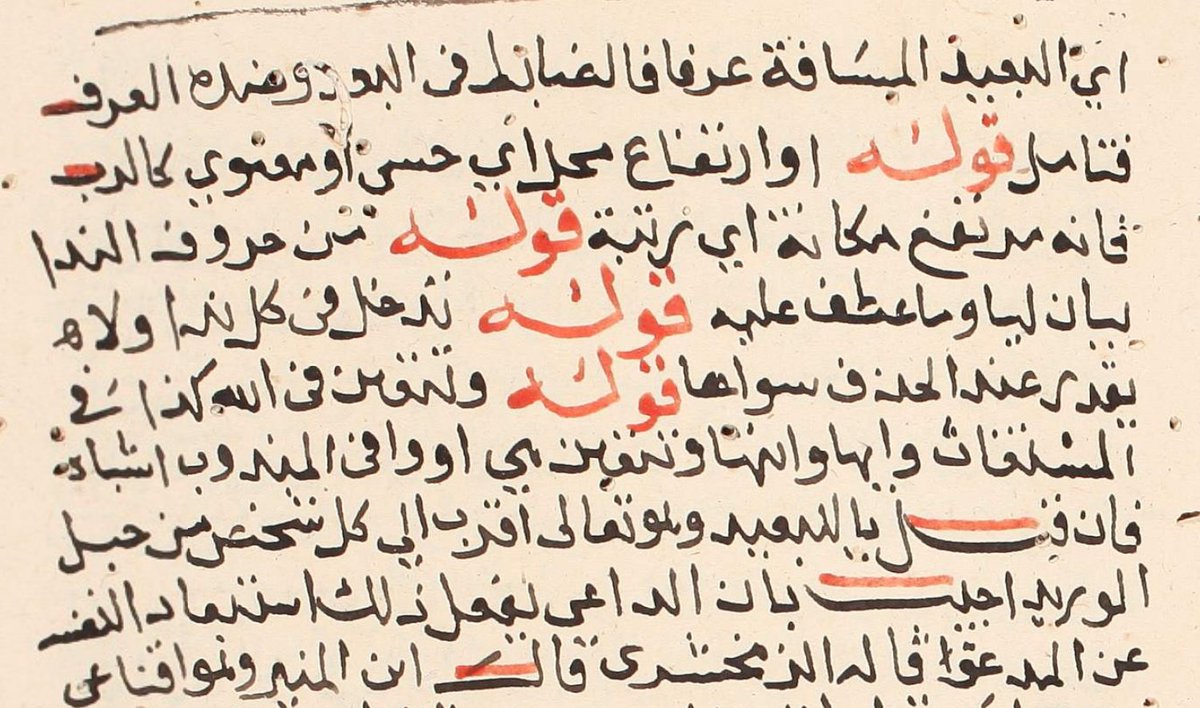 اي البعيد المسافة عرفا فالضابط في البعد وضده العرف
فتامل قوله او ارتفاع محل اي حسي او معنوي كالرب
فانه مرتفع مكانة اي رتبة قوله من حروف الندا
بيان ليا وما عطف عليه قوله تدخل في كل ندا ولا
يقدر عند الحذف سواها قوله وتتعين في الله كذا في
المستغاث وايها وايتها وتتعين هي او وا في المندوب اشباه
فان قيل يا للبعيد وهو تعالى اقرب الي كل شخص من حبل
الوريد اجيب بان الداعي يفعل ذلك استبعاد النفسه
عن المدعو قاله الزمخشري قال ابن المنير وهو اقناعي